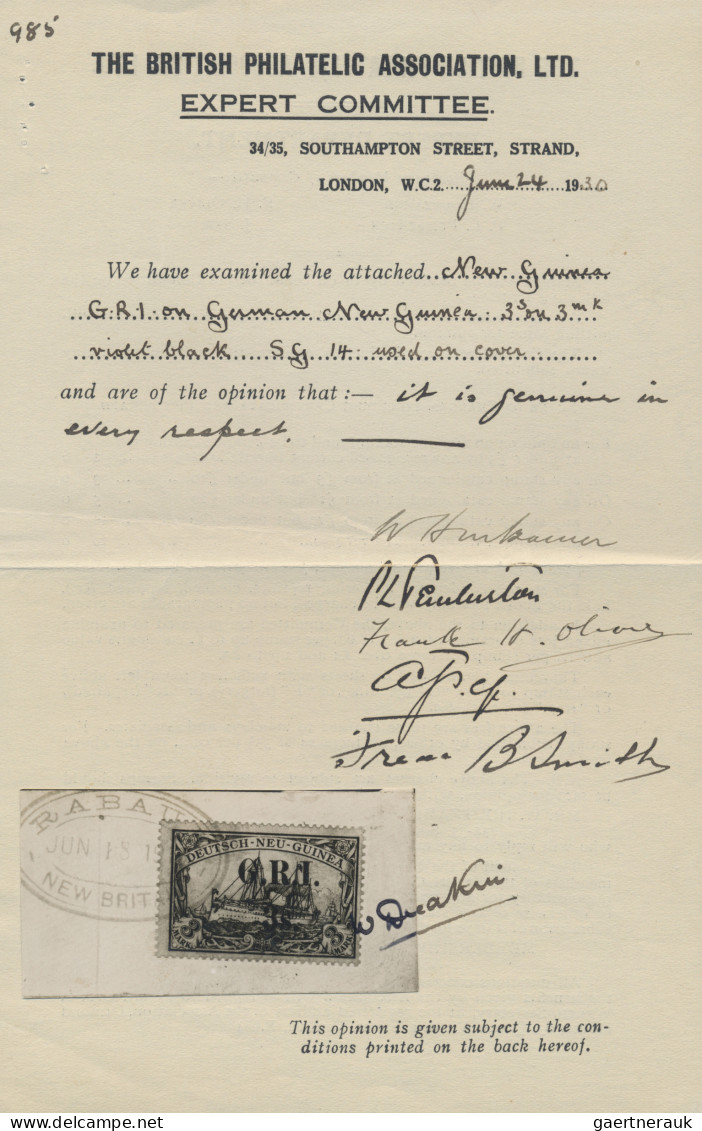 985
THE BRITISH PHILATELIC ASSOCIATION, LTD.
EXPERT COMMITTEE.
34/35, SOUTHAMPTON STREET, STRAND,
LONDON, W.C.2. June 24 1930
We have examined the attached New Guinea
G.R.I. on German New Guinea 3s on 3mk
violet black SG 14 used on cover
and are of the opinion that :— it is genuine in
every respect.
P L Pemberton
Frank H. Oliver
B Smith
RABAU
JUN 18 1
NEW BRIT
DEUTSCH-NEU-GUINEA
G.R.I.
3s.
3 MARK 3 MARK
This opinion is given subject to the con-
ditions printed on the back hereof.
gaertnerauk